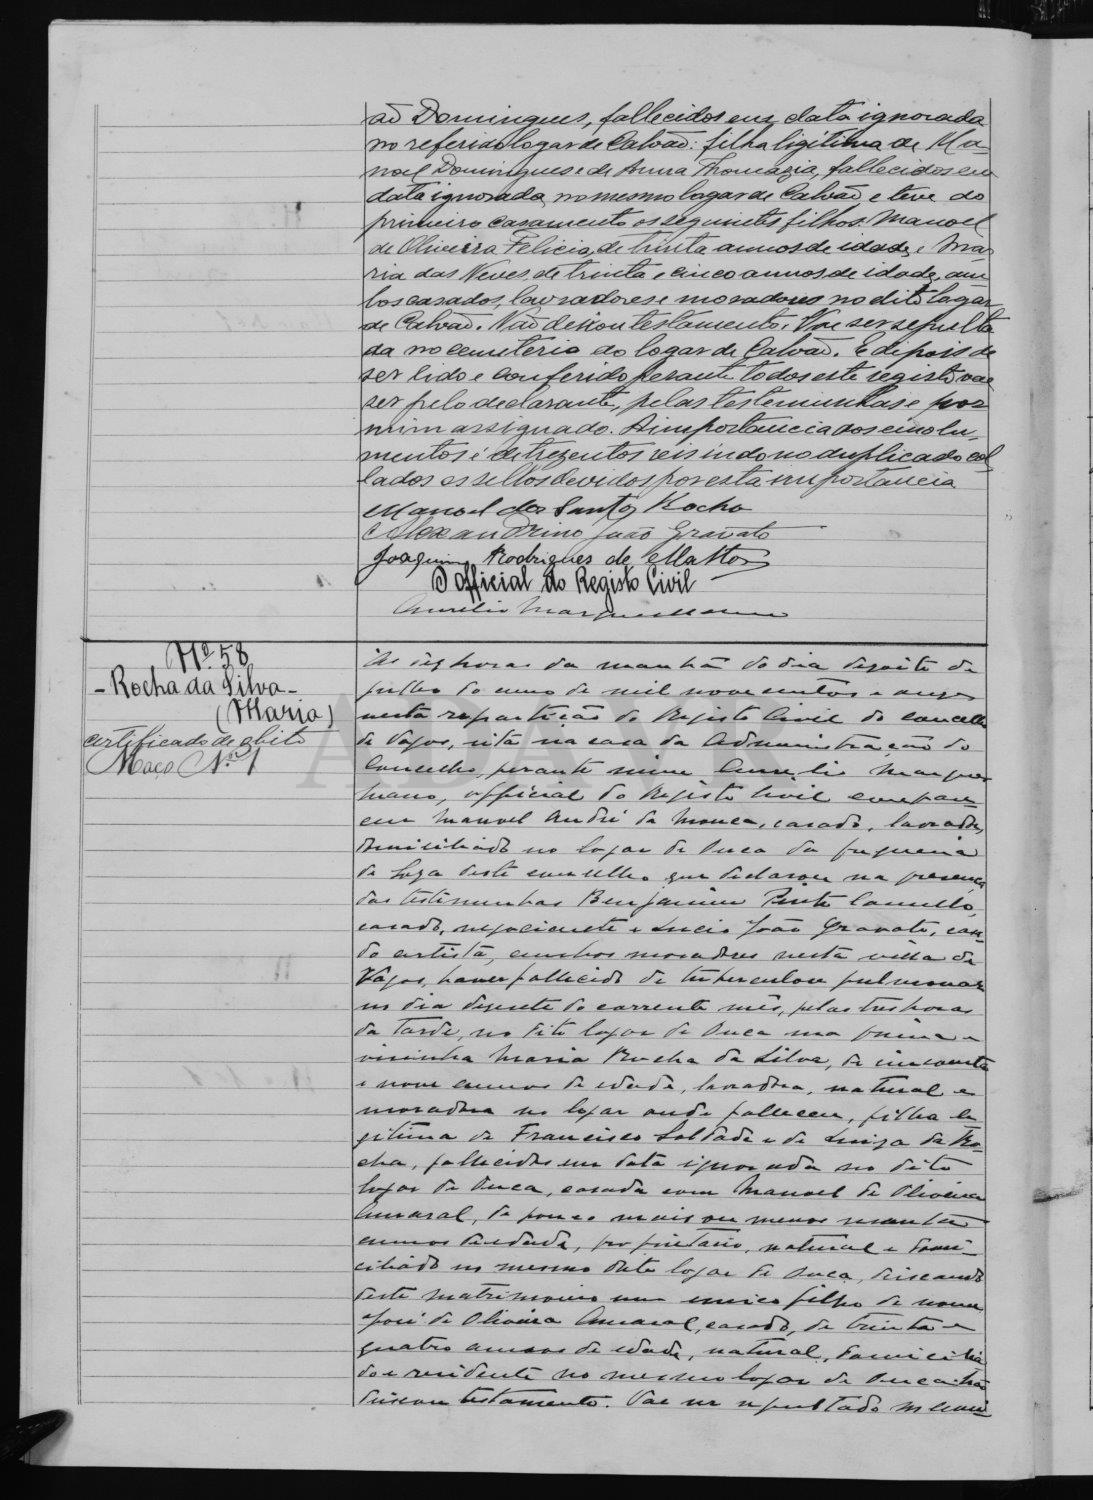 aõ Domingues, fallecidos em data ignorada
no referido logar de Calvaõ: filha ligitima de Ma-
noel Domingues e de Anna Thomazia, fallecidos em
data ignorada no mesmo logar de Calvaõ e teve do
primeiro casamento os seguintes filhos: Manoel
de Oliveira Felicio, de trinta annos de idade, e Ma-
ria das Neves de trinta e cinco annos de idade, am-
bos casados, lavradores e moradores no dito logar
de Calvaõ. Não deixou testamento. Vae ser sepulta
da no cemiterio do logar de Calvaõ. E depois de
ser lido e conferido perante todos este registo vae
ser pelo declarante, pelas testemunhas e por
mim assignado. A importancia dos emolu-
mentos é de trezentos reis indo no duplicado col-
lados os sellos devidos por esta importancia
Manoel dos Santos Rocha
Alexandrino João Gravato
Joaquim Rodrigues de Mattos
O official do Registo Civil
Aurelio Marques Mano
Nº 58
- Rocha da Silva -
(Maria)
certificado de obito
Maço Nº 1
As dez horas da manhã do dia dezoito de
julho do anno de mil nove centos e onze
nesta repartição do Registo Civil do concelho
de Vagos, sita na casa da Administração do
Concelho, perante mim Aurelio Marques
Mano, official do Registo Civil compare-
ceu Manoel André da Monca, casado, lavrador,
domiciliado no logar de Ouca da freguesia
de Soza deste concelho que declarou na presença
das testimunhas Benjamim Pinto Camello,
casado, negociante e Lucio João Gravato, casa-
do artista, ambos moradores nesta villa de
Vagos, haver fallecido de tuberculose pulmonar
no dia dezesete do corrente mês, pelas tres horas
da tarde, no dito logar de Ouca uma prima e
visinha Maria Rocha da Silva, de cincoenta
e nove annos de edade, lavradora, natural e
moradora no logar onde falleceu, filha le-
gitima de Francisco Soldado e de Luiza da Ro-
cha, fallecidos em data ignorada no dito
logar de Ouca, casada com Manoel de Oliveira
Amaral, de pouco mais ou menos sessenta
annos de edade, proprietario, natural e domi-
ciliado no mesmo dito logar de Ouca, deixando
deste matrimonio um unico filho de nome
José de Oliveira Amaral, casado, de trinta e
quatro annos de edade, natural, domicilia
do e residente no mesmo logar de Ouca. Não
deixou testamento. Vae ser sepultado no cemi-
ADAVR